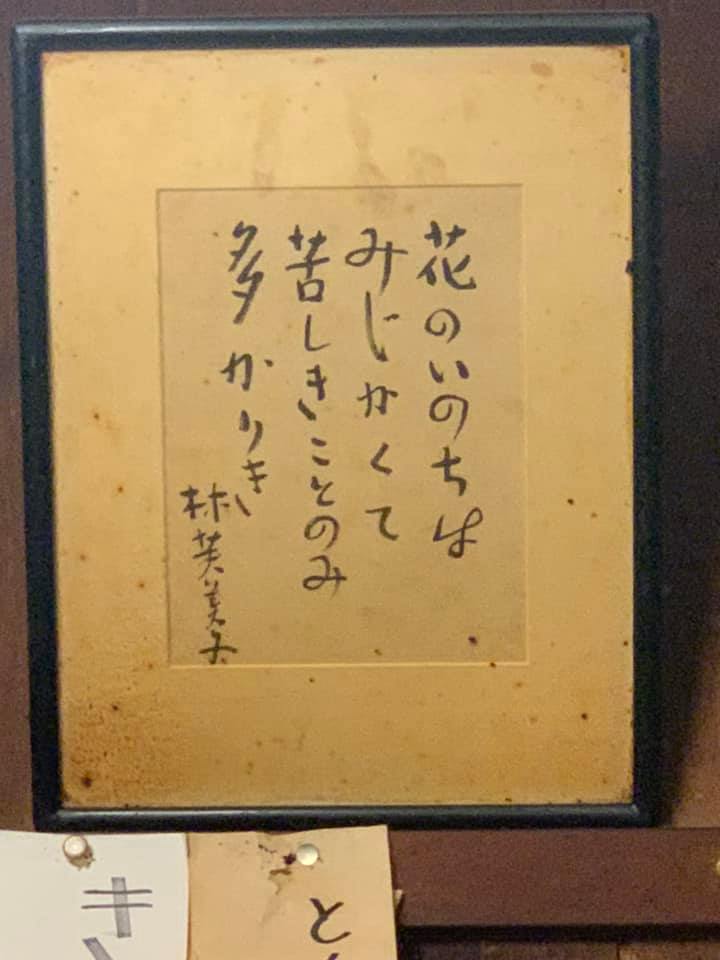 花のいのちは
みじかくて
苦しきことのみ
多かりき
林芙美子
キ
と